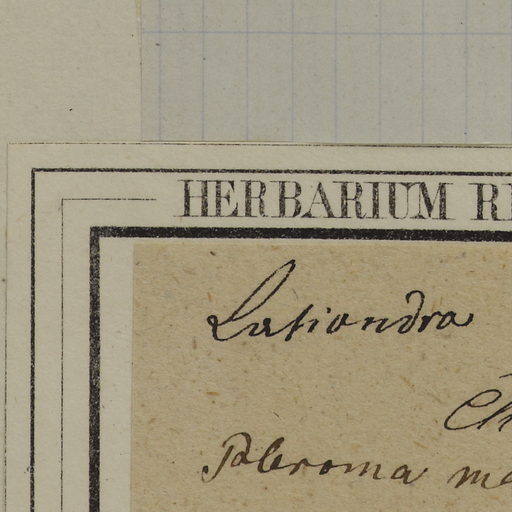 HERBARIUM R
Lasiandra
Ch
Pleroma ma